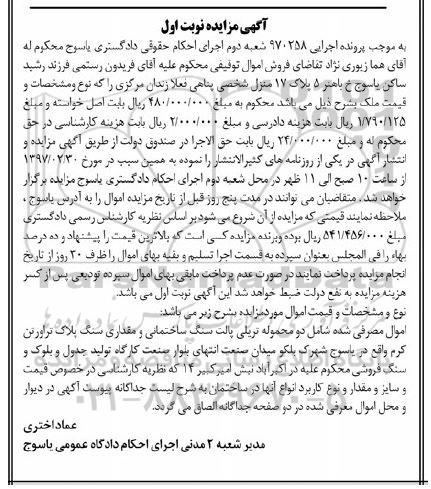 آگهی مزایده نوبت اول
به موجب پرونده اجرایی ۹۷۰۲۵۸ شعبه دوم اجرای احکام حقوقی دادگستری یاسوج محکوم له
آقای هما زیوری نژاد تقاضای فروش اموال توقیفی محکوم علیه آقای فریدون رستمی فرزند رشید
ساکن یاسوج خ باهنر ۵ پلاک ۱۷ منزل شخصی پناهی فعلا زندان مرکزی را که نوع ومشخصات و
قیمت ملک بشرح ذیل می باشد محکوم به مبلغ ۴۸۰/۰۰۰/۰۰۰ ریال بابت اصل خواسته و مبلغ
۱/۷۹۰/۱۲۵ ریال بابت هزینه دادرسی و مبلغ ۲/۰۰۰/۰۰۰ ریال بابت هزینه کارشناسی در حق
محکوم له و مبلغ ۲۴/۰۰۰/۰۰۰ ریال بابت حق الاجرا در صندوق دولت از طریق آگهی مزایده و
انتشار آگهی در یکی از روزنامه های کثیرالانتشار را نموده به همین سبب در مورخ ۱۳۹۷/۰۲/۳۰
از ساعت ۱۰ صبح الی ۱۱ ظهر در محل شعبه دوم اجرای احکام دادگستری یاسوج مزایده برگزار
خواهد شد. متقاضیان می توانند در مدت پنج روز قبل از تاریخ مزایده اموال را به آدرس یاسوج ،
ملاحظه نمایند قیمتی که مزایده از آن شروع می شود بر اساس نظریه کارشناس رسمی دادگستری
مبلغ ۵۴۱/۴۵۶/۰۰۰ ریال بوده وبرنده مزایده کسی است که بالاترین قیمت را پیشنهاد و ده درصد
بهاء را فی المجلس بعنوان سپرده به قسمت اجرا تسلیم و بقیه بهای اموال را ظرف ۲۰ روز از تاریخ
انجام مزایده پرداخت نمایند در صورت عدم پرداخت مابقی بهای اموال سپرده تودیعی پس از کسر
هزینه مزایده به نفع دولت ضبط خواهد شد این آگهی نوبت اول می باشد.
نوع و مشخصات و قیمت اموال موردمزایده بشرح زیر می باشد:
اموال معرفی شده شامل دو محموله تریلی پالت سنگ ساختمانی و مقداری سنگ پلاک تراورتن
کرم واقع در یاسوج شهرک بلکو میدان صنعت انتهای بلوار صنعت کارگاه تولید جدول و بلوک و
سنگ فروشی محکوم علیه در اکبرآباد نبش امیرکبیر ۱۴ که نظریه کارشناسی در خصوص قیمت
و سایز و مقدار و نوع کاربرد انواع آنها در ساختمان به شرح لیست جداگانه پیوست آگهی در دیوار
و محل اموال معرفی شده در دو صفحه جداگانه الصاق می گردد.
عماداختری
مدیر شعبه ۲ مدنی اجرای احکام دادگاه عمومی یاسوج